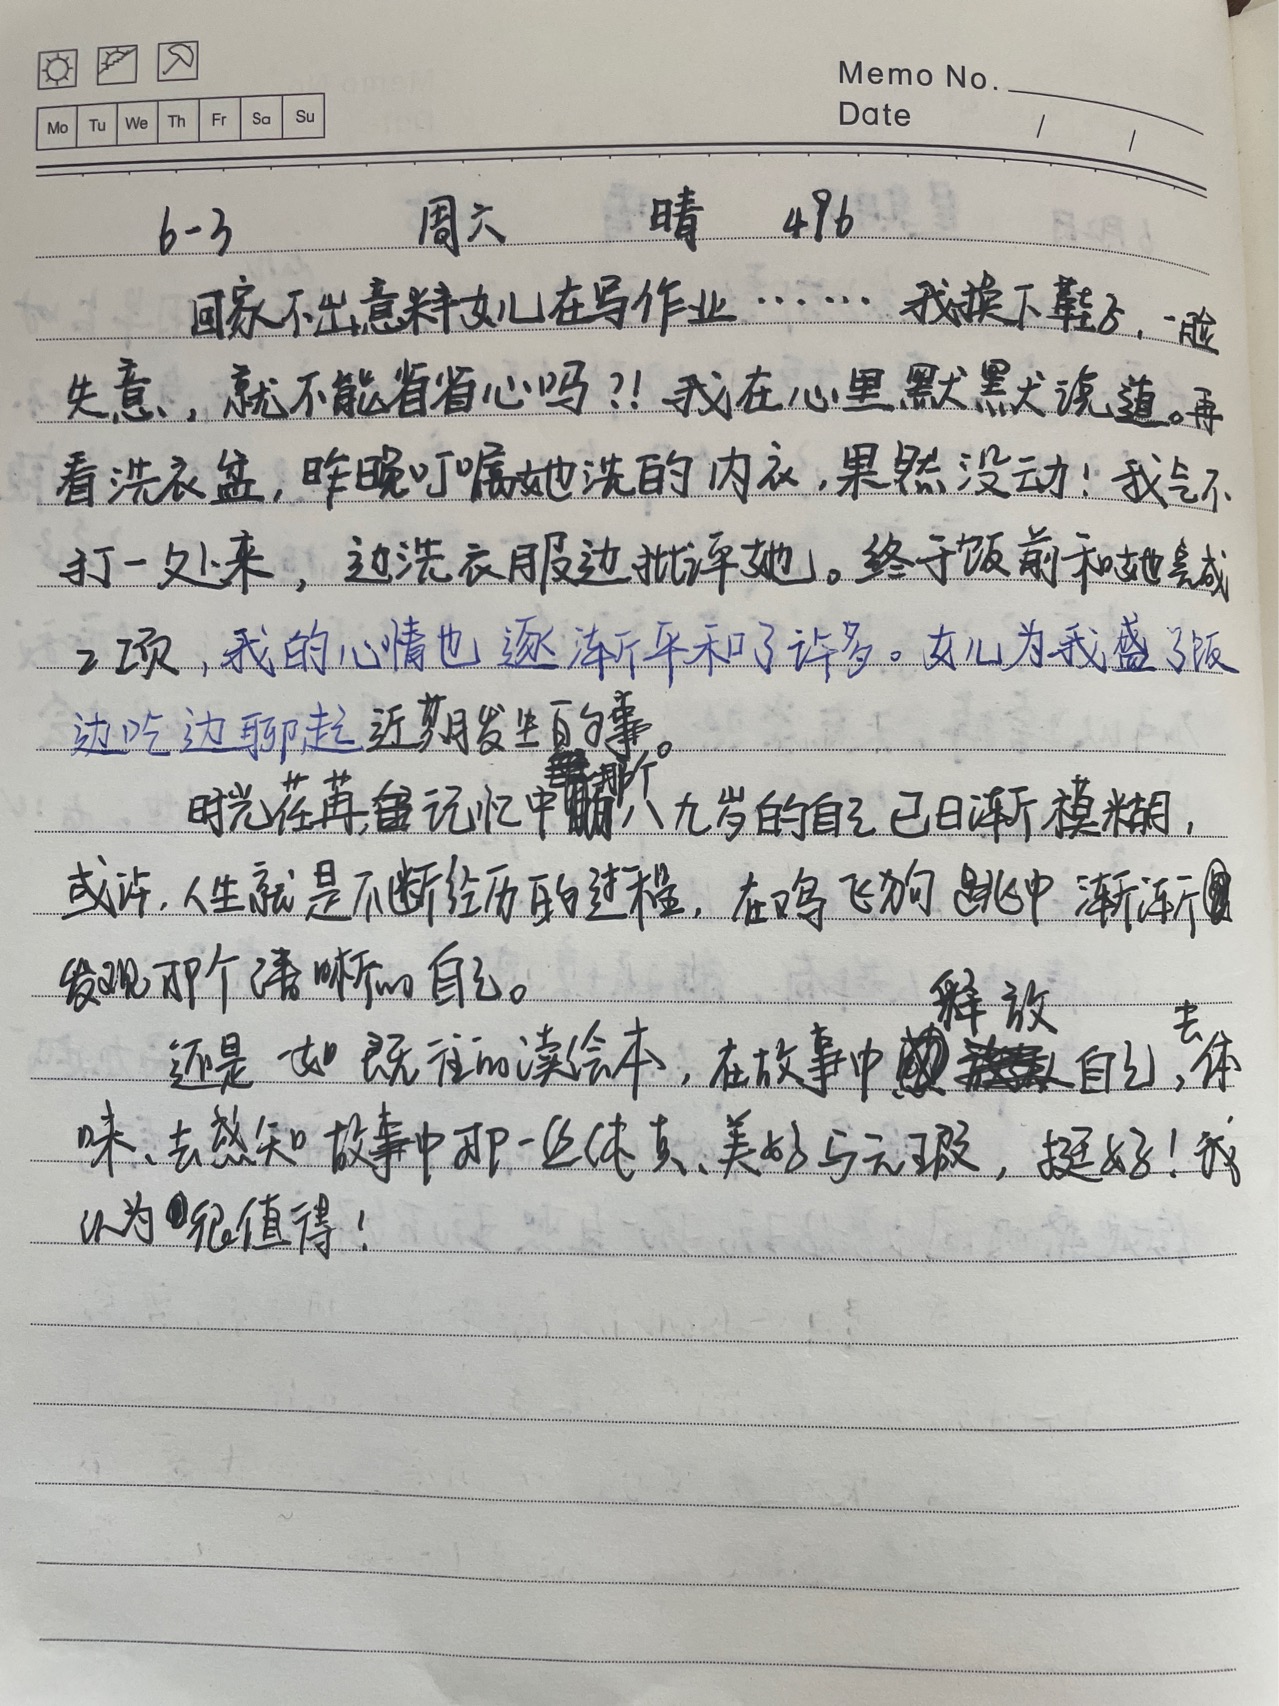 Memo No.
Date / /
Mo Tu We Th Fr Sa Su
6-3 周六 晴 496
回家不出意料女儿在写作业…… 我换下鞋子,一脸
失意,就不能省省心吗?!我在心里默默说道。再
看洗衣盆,昨晚叮嘱她洗的内衣,果然没动!我气不
打一处来,边洗衣服边批评她。终于饭前和她完成
2项,我的心情也逐渐平和了许多。女儿为我盛了饭
边吃边聊起近期发生的事。
时光荏苒,记忆中那个八九岁的自己已日渐模糊,
或许,人生就是不断经历的过程,在鸡飞狗跳中渐渐
发现那个清晰的自己。
还是一如既往的读绘本,在故事中释放自己,去体
味、去感知故事中那一丝纯真、美好与无瑕,挺好!我
认为很值得!